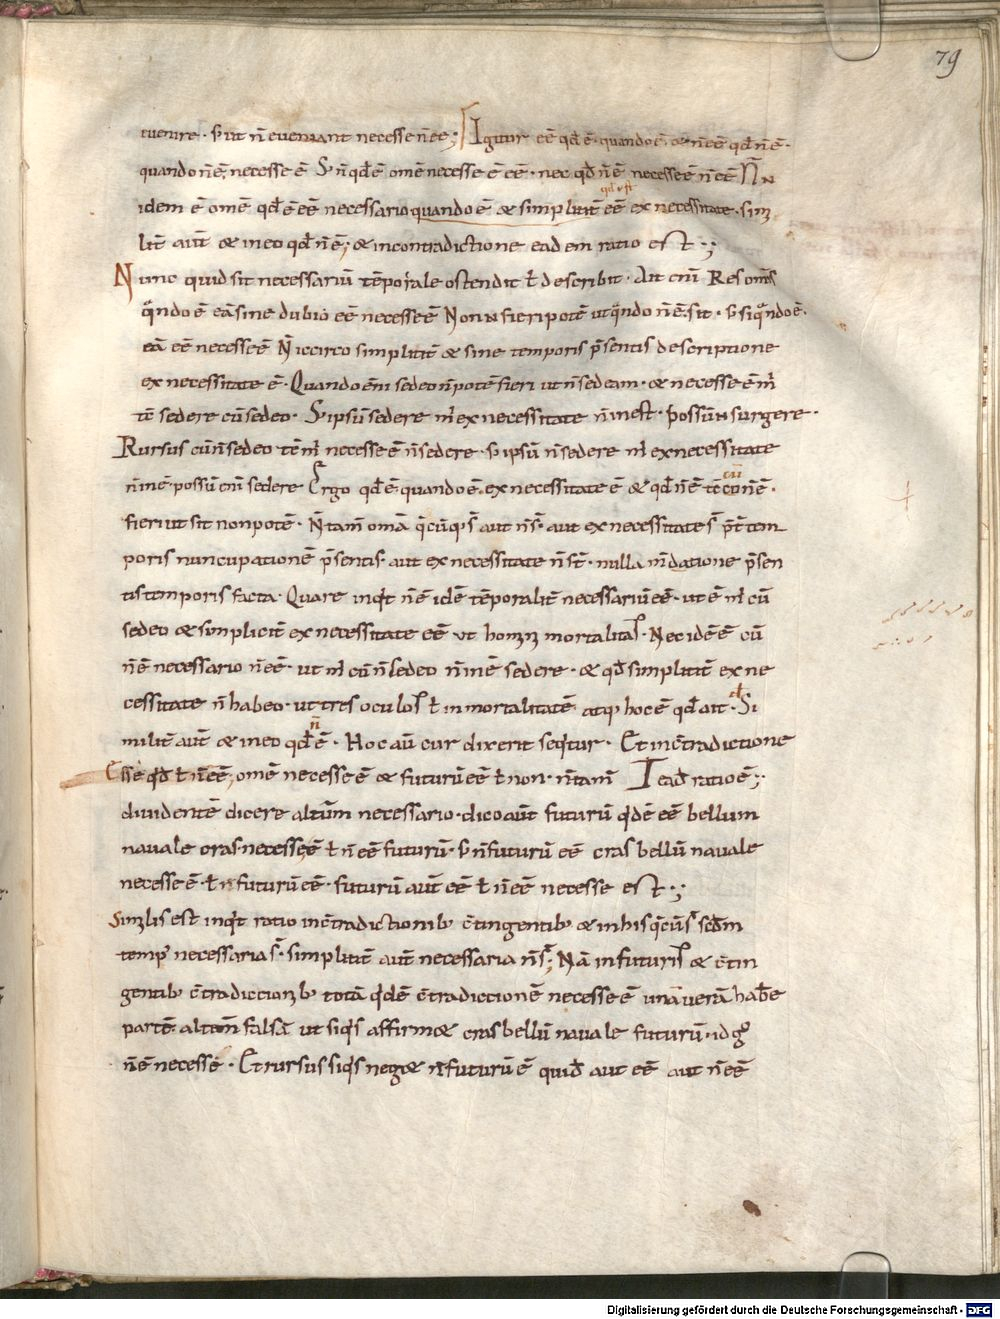 79
euenire · s; ut n̄ eueniant necesse n̄ eē; Igitur eē qđ ē · quando ē · & n̄ eē qđ n̄ ē ·
quando n̄ ē; necesse ē S; n̄ qđ ē omē necesse ē eē · nec qđ n̄ ē necesse ē n̄ eē
idem ē omē qđ ē eē necessario quando ē & simplicit̄ eē ex necessitate ·
lit̄ aut̄ & in eo qđ n̄ ē; & in contradictione eadem ratio est ·;
Nunc quid sit necessariū tēporale ostendit ł describit · Ait enī Res
qn̄do ē eā sine dubio eē necesse ē Non fieri potē ut qn̄do n̄ ē sit · s; si qn̄do ē ·
eā eē necesse ē N̄ iccirco simplicit̄ & sine temporis p̄sentis descriptione
ex necessitate ē · Quando enī sedeo n̄ potē fieri ut n̄ sedeam · & necesse ē m̄
tē sedere cū sedeo · S; ipsū sedere m̄ ex necessitate n̄ inest · possū surgere ·
Rursus cū n̄ sedeo tē m̄ necesse ē n̄ sedere · s; ipsū n̄ sedere m̄ ex necessitate
n̄ inē · possū enī sedere Ergo qđ ē quando ē ex necessitate ē & qđ n̄ ē
cū
n̄ ē ·
fieri ut sit non potē · N̄ tam̄ omā aut n̄ s̄ · aut ex necessitate s̄ p̄t tem
poris nuncupationē p̄sentis · aut ex necessitate n̄ st̄ · nulla datione p̄sen
tis temporis facta · Quare inqt n̄ ē idē tēporalit̄ necessariū eē · ut ē m̄ cū
sedeo & simplicit̄ ex necessitate eē ut mortalitas · Nec idē ē cū
n̄ ē necessario n̄ eē · ut m̄ cū n̄ sedeo n̄ inē sedere · & qđ simplicit̄ ex ne
cessitate n̄ habeo · ut tres oculos ł inmortalitatē atq; hoc ē qđ ait · Si
n̄
milit̄ aut̄ & in eo qđ ē · Hoc aū cur dixerit seqtur · Et in c̄tradictione
Esse qđ ł n̄ eē; omē necesse ē & futurū eē ł non · n̄ tam̄ eađ ratio ē;
diuidentē dicere altm̄ necessario · dico aut̄ futurū qdē eē bellum
nauale cras necesse ē ł n̄ eē futurū · s; n̄ futurū eē cras bellū nauale
necesse ē · ł n̄ futurū eē · futurū aut̄ eē ł n̄ eē necesse est ·;
Similis est inqt ratio in c̄tradictionib; c̄tingentib; & in his secđm
temp' necessaria s̄ · simplicit̄ aut̄ necessaria n̄ s̄; Nā in futuris & c̄tin
gentib; c̄tradiccionib; totā qdē c̄tradiccionē necesse ē unā uerā habe
partē alteram falsā ut siqs affirm& cras bellū nauale futurū · id g°
n̄ ē necesse · Et rursus siqs neg& n̄ futurū ē quiđ aut eē aut n̄ eē
Digitalisierung gefördert durch die Deutsche Forschungsgemeinschaft - DFG